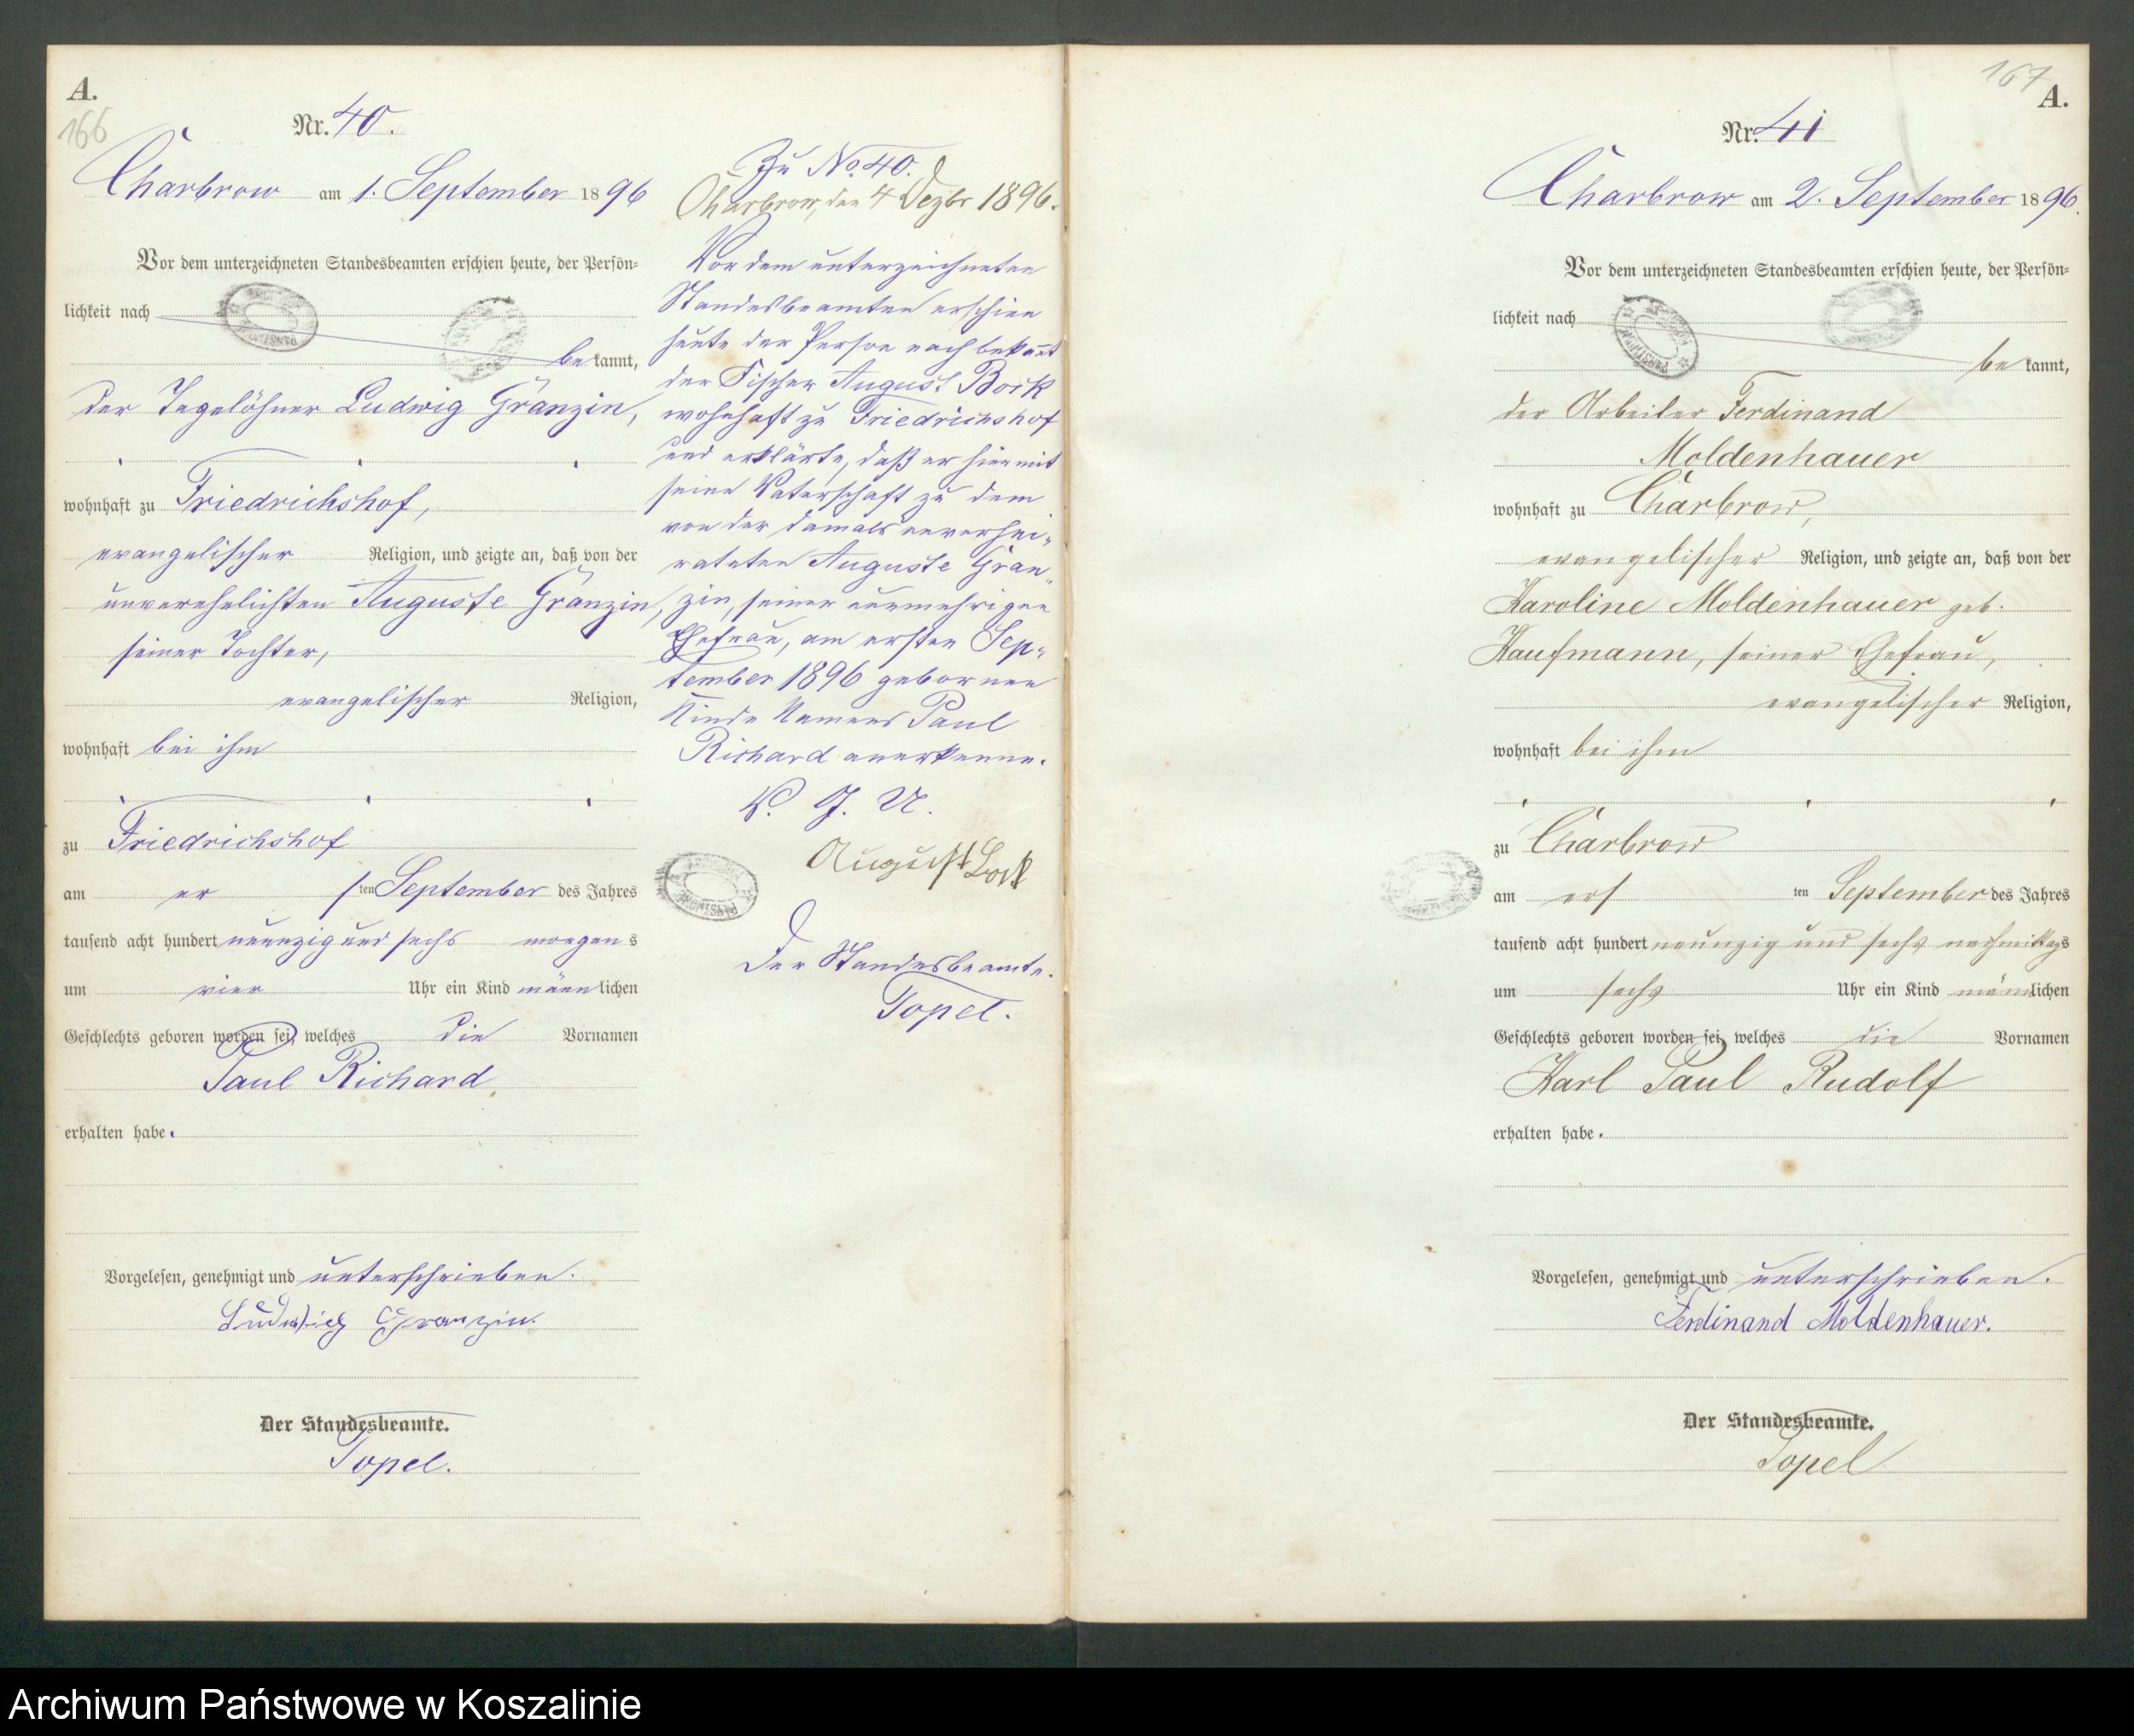 A.
166
Nr. 40.
Charbrow am 1. September 1896
Vor dem unterzeichneten Standesbeamten erschien heute, der Persön-
lichkeit nach
be kannt,
der Tagelöhner Ludwig Granzin,
wohnhaft zu Friedrichshof,
evangelischer Religion, und zeigte an, daß von der
unverehelichten Auguste Granzin,
seiner Tochter,
evangelischer Religion,
wohnhaft bei ihm
zu Friedrichshof
am er sten September des Jahres
tausend acht hundert neunzig und sechs morgens
um vier Uhr ein Kind männlichen
Geschlechts geboren worden sei, welches die Vornamen
Paul Richard
erhalten habe.
Vorgelesen, genehmigt und unterschrieben.
Ludwig Granzin.
Der Standesbeamte.
Topel.
Zu No. 40.
Charbrow, den 4 Dezbr 1896.
Vor dem unterzeichneten
Standesbeamten erschien
heute der Person nach bekannt
der Fischer August Bock
wohnhaft zu Friedrichshof
und erklärte, daß er hiermit
seine Vaterschaft zu dem
von der damals unverhei-
rateten Auguste Gran-
zin, seiner nunmehrigen
Ehefrau, am ersten Sep-
tember 1896 gebornen
Kinde Namens Paul
Richard anerkenne.
V. G. U.
August Bock
Der Standesbeamte.
Topel.
167
A.
Nr. 41
Charbrow am 2. September 1896.
Vor dem unterzeichneten Standesbeamten erschien heute, der Persön-
lichkeit nach
be kannt,
der Arbeiter Ferdinand
Moldenhauer
wohnhaft zu Charbrow,
evangelischer Religion, und zeigte an, daß von der
Karoline Moldenhauer geb.
Kaufmann, seiner Ehefrau,
evangelischer Religion,
wohnhaft bei ihm
zu Charbrow
am ers ten September des Jahres
tausend acht hundert neunzig und sechs nachmittags
um sechs Uhr ein Kind männlichen
Geschlechts geboren worden sei, welches die Vornamen
Karl Paul Rudolf
erhalten habe.
Vorgelesen, genehmigt und unterschrieben.
Ferdinand Moldenhauer.
Der Standesbeamte.
Topel
Archiwum Państwowe w Koszalinie